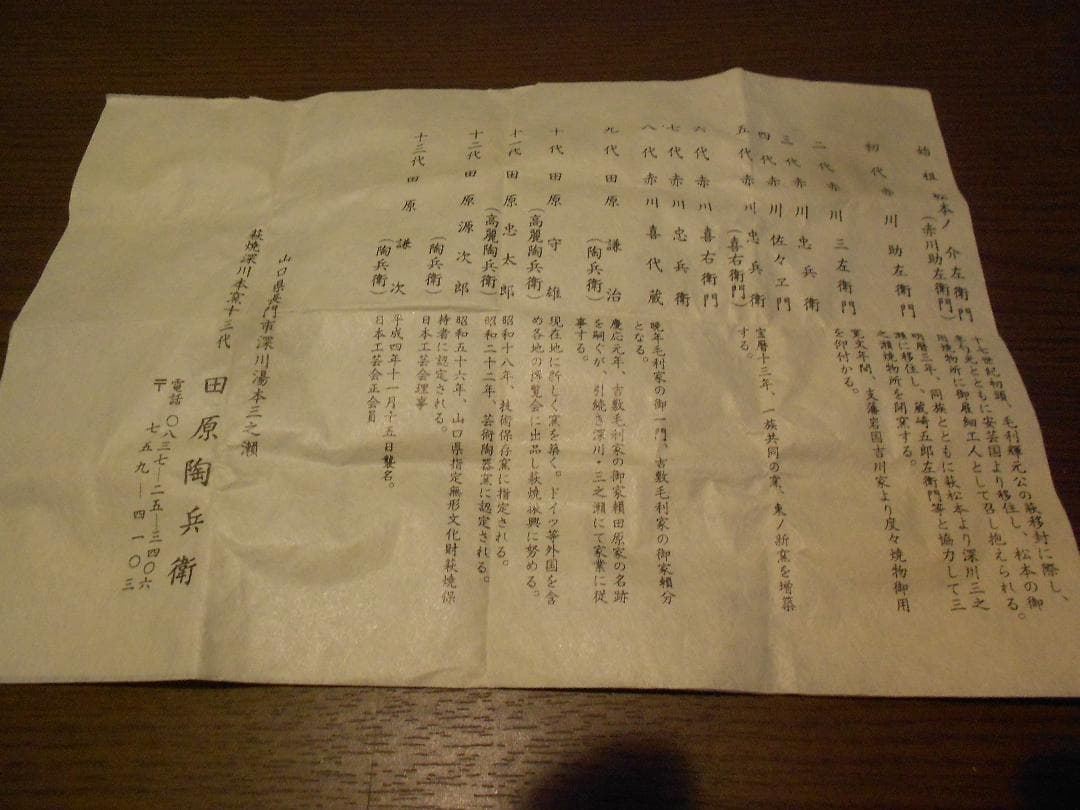 始祖 松本ノ介左衛門
(赤川助左衛門)
十七世紀初頭、毛利輝元公の萩移封に際し、
李勺光とともに安芸国より移住し、松本の御
用焼物所に御雇細工人として召し抱えられる。
初代 赤川助左衛門
明暦三年、同族とともに萩松本より深川三之
瀬に移住し、蔵崎五郎左衛門等と協力して三
之瀬焼物所を開窯する。
二代 赤川三左衛門
寛文年間、支藩岩国吉川家より度々焼物御用
を仰付かる。
三代 赤川忠兵衛
四代 赤川佐々ヱ門
五代 赤川忠兵衛
(喜右衛門)
宝暦十三年、一族共同の窯、東ノ新窯を増築
する。
六代 赤川喜右衛門
七代 赤川忠兵衛
八代 赤川喜代蔵
晩年毛利家の御一門、吉敷毛利家の御家頼分
となる。
九代 田原謙治
(陶兵衛)
慶応元年、吉敷毛利家の御家頼田原家の名跡
を嗣ぐが、引続き深川・三之瀬にて家業に従
事する。
十代 田原守雄
(高麗陶兵衛)
現在地に新しく窯を築く。ドイツ等外国を含
め各地の博覧会に出品し萩焼振興に努める。
十一代 田原忠太郎
(高麗陶兵衛)
昭和十八年、技術保存窯に指定される。
昭和二十二年、芸術陶器窯に認定される。
十二代 田原源次郎
(陶兵衛)
昭和五十六年、山口県指定無形文化財萩焼保
持者に認定される。
日本工芸会理事
十三代 田原謙次
(陶兵衛)
平成四年十一月十五日襲名。
日本工芸会正会員
山口県長門市深川湯本三之瀬
萩焼深川本窯十三代
田原陶兵衛
電話 〇八三七―二五―三四〇六
〒 七五九―四一〇三